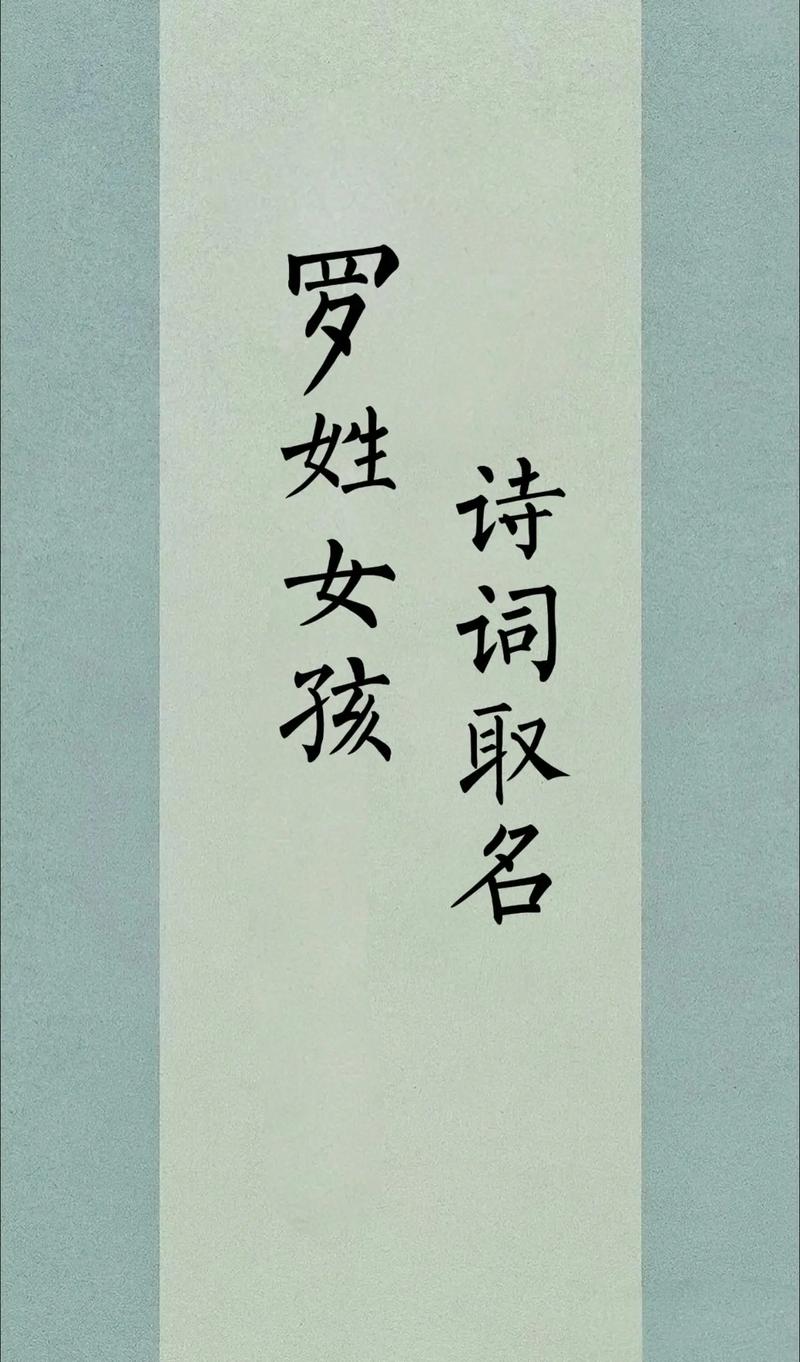 罗姓女孩
诗词取名